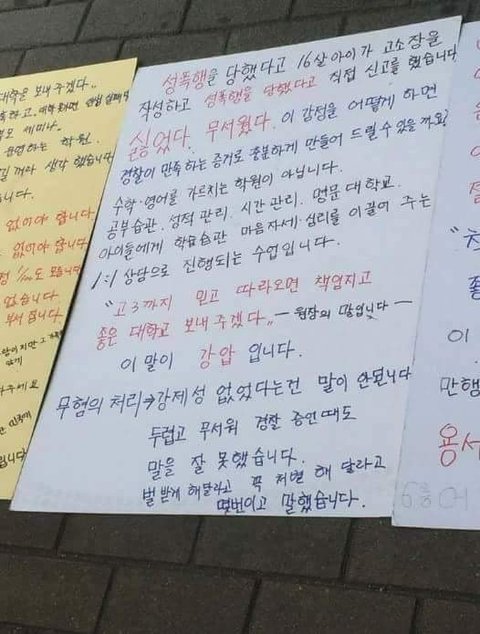 대학을 보내 주겠다„
부모 세미나.
운영하는 학원.
길 꺼라 생각 했습니다
없어야 합니다
는 없어야 합니다
도 모릅니다
없습니다.
부서 집니다.
성폭행을 당했다고 16살아이가 고소장을
작성하고 성폭행을 당했다고 직접 신고를 했습니다
싫었다. 무서웠다. 이 감정을 어떻게 하면
경찰이 만족하는 증거로 충분하게 만들어 드릴 수 있을까요?
수학·영어를 가르치는 학원이 아닙니다.
공부습관. 성적 관리. 시간 관리. 명문 대학교.
아이들에게 학습습관 마음자세·심리를 이끌어 주는
1:1 상담으로 진행되는 수업입니다.
"고3까지 믿고 따라오면 책임지고
좋은 대학교 보내주겠다„ — 원장의 말입니다 —
이 말이 강압 입니다.
무혐의 처리→강제성 없었다는건 말이 안됩니다
두렵고 무서워 경찰 증언때도
말을 잘 못했습니다.
벌 받게 해달라고 꼭 처벌 해 달라고
몇번이고 말했습니다.
이
만행
용서